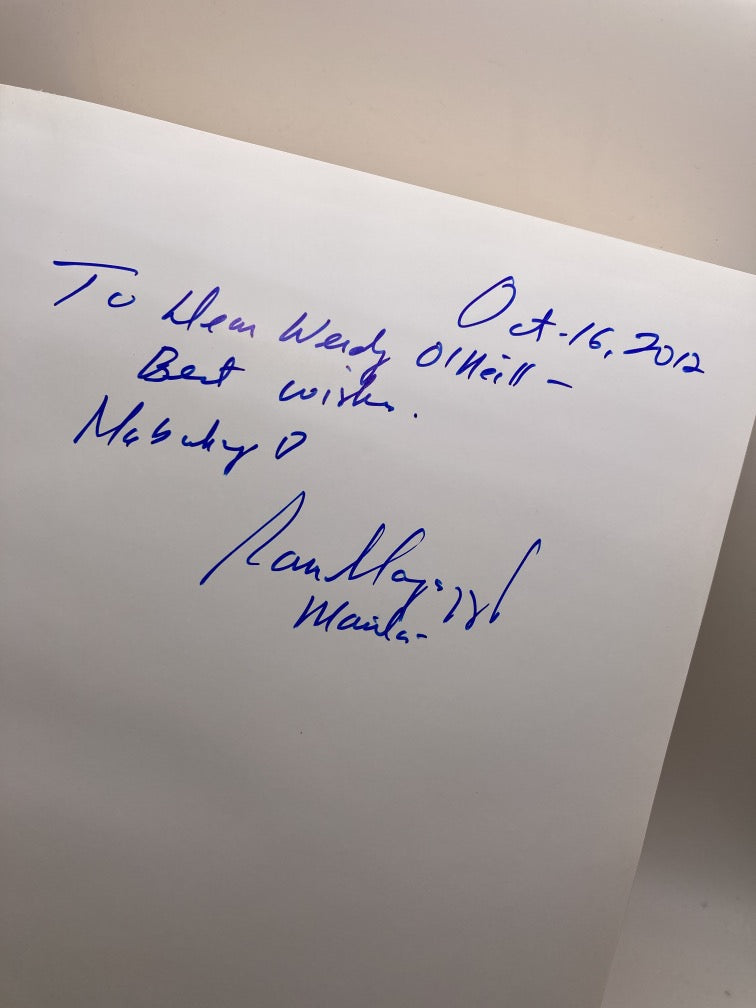 Oct-16, 2012
To Dear Wendy O'Neill -
Best wishes.
Mabuhay
Manila-